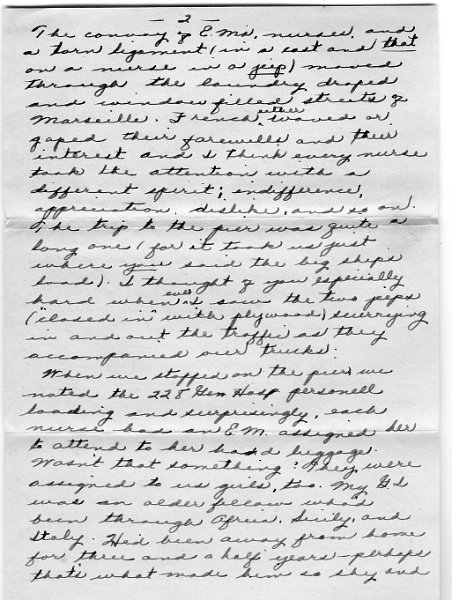 - 2 -
The convoy of E.Ms, nurses, and
a torn ligament (in a cast and that
on a nurse in a jeep) moved
through the laundry draped
and window filled streets of
Marseille. French either waved or
gaped their farewells and their
interest and I think every nurse
took the attention with a
different spirit; indifference,
appreciation, dislike, and so on.
The trip to the pier was quite a
long one (for it took us just
where you said the big ships
load). I thought of you especially
hard when ever I saw the two jeeps
("closed in" with plywood) scurrying
in and out the traffic as they
accompanied our trucks.
When we stopped on the pier we
noted the 228 Gen Hosp personell
loading and surprisingly, each
nurse had an E.M. assigned her
to attend to her hand baggage.
Wasn't that something? They were
assigned to us girls, too. My G I
was an older fellow who'd
been through Africa, Sicily, and
Italy. He'd been away from home
for three and a half years - perhaps
that's what made him so shy and